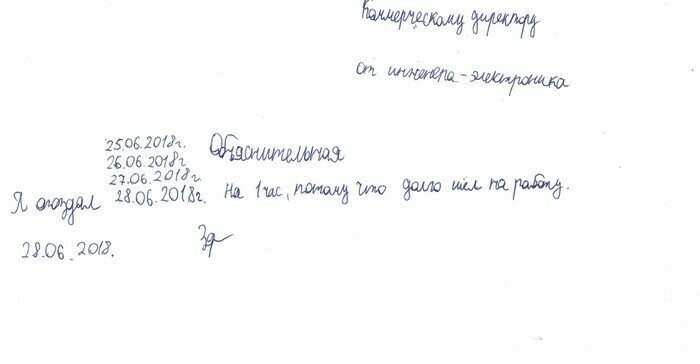 Коммерческому директору
от инженера-электроника
Объяснительная
25.06.2018г.
26.06.2018г
27.06.2018г.
Я опоздал 28.06.2018г. на 1 час, потому что долго шёл на работу.
28.06.2018.